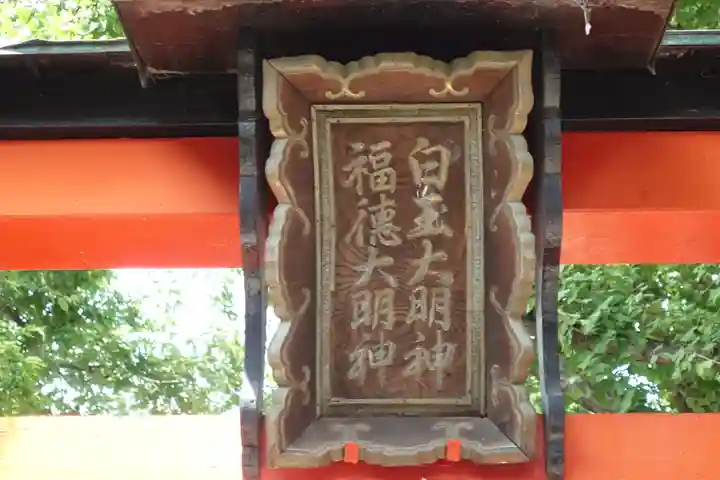 白玉大明神
福德大明神